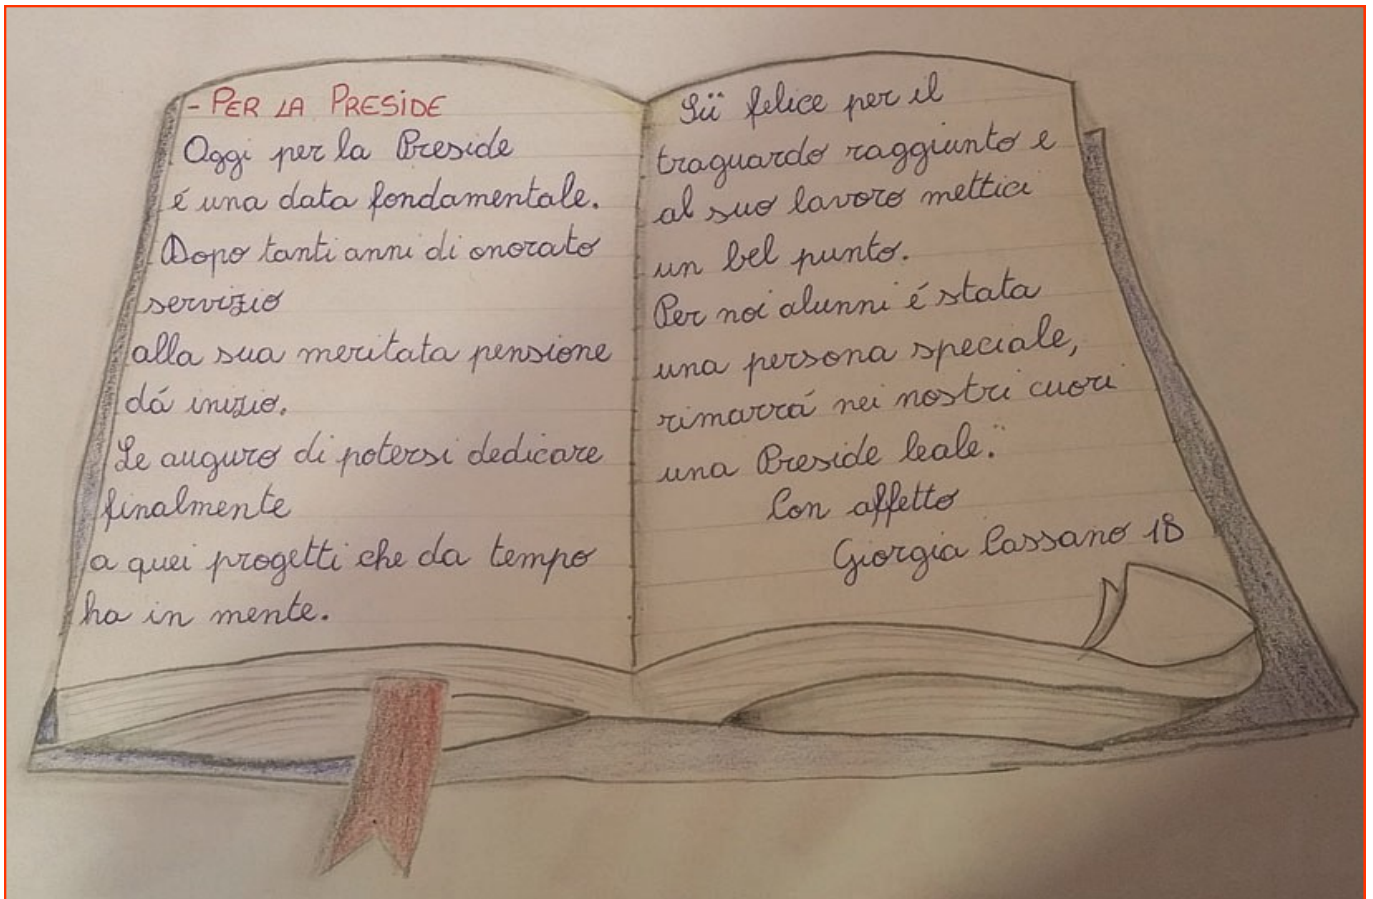 - PER LA PRESIDE
Oggi per la Preside
é una data fondamentale.
Dopo tanti anni di onorato
servizio
alla sua meritata pensione
dá inizio.
Le auguro di potersi dedicare
finalmente
a quei progetti che da tempo
ha in mente.
Sii felice per il
traguardo raggiunto e
al suo lavoro mettici
un bel punto.
Per noi alunni é stata
una persona speciale,
rimarrá nei nostri cuori
una Preside leale.
Con affetto
Giorgia Cassano 1B